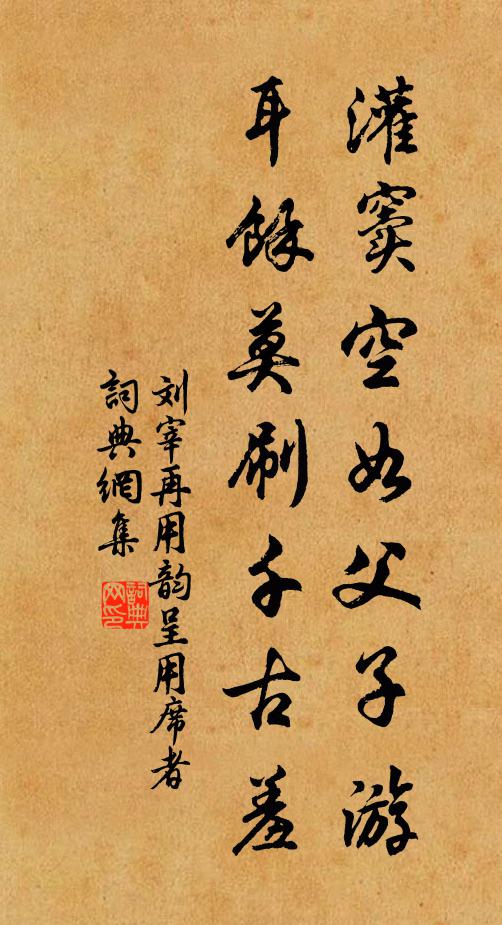 灌窦空如父子游
耳馀莫刷千古羞
刘宰再用韵呈用席者
詞典網集
詞典网印